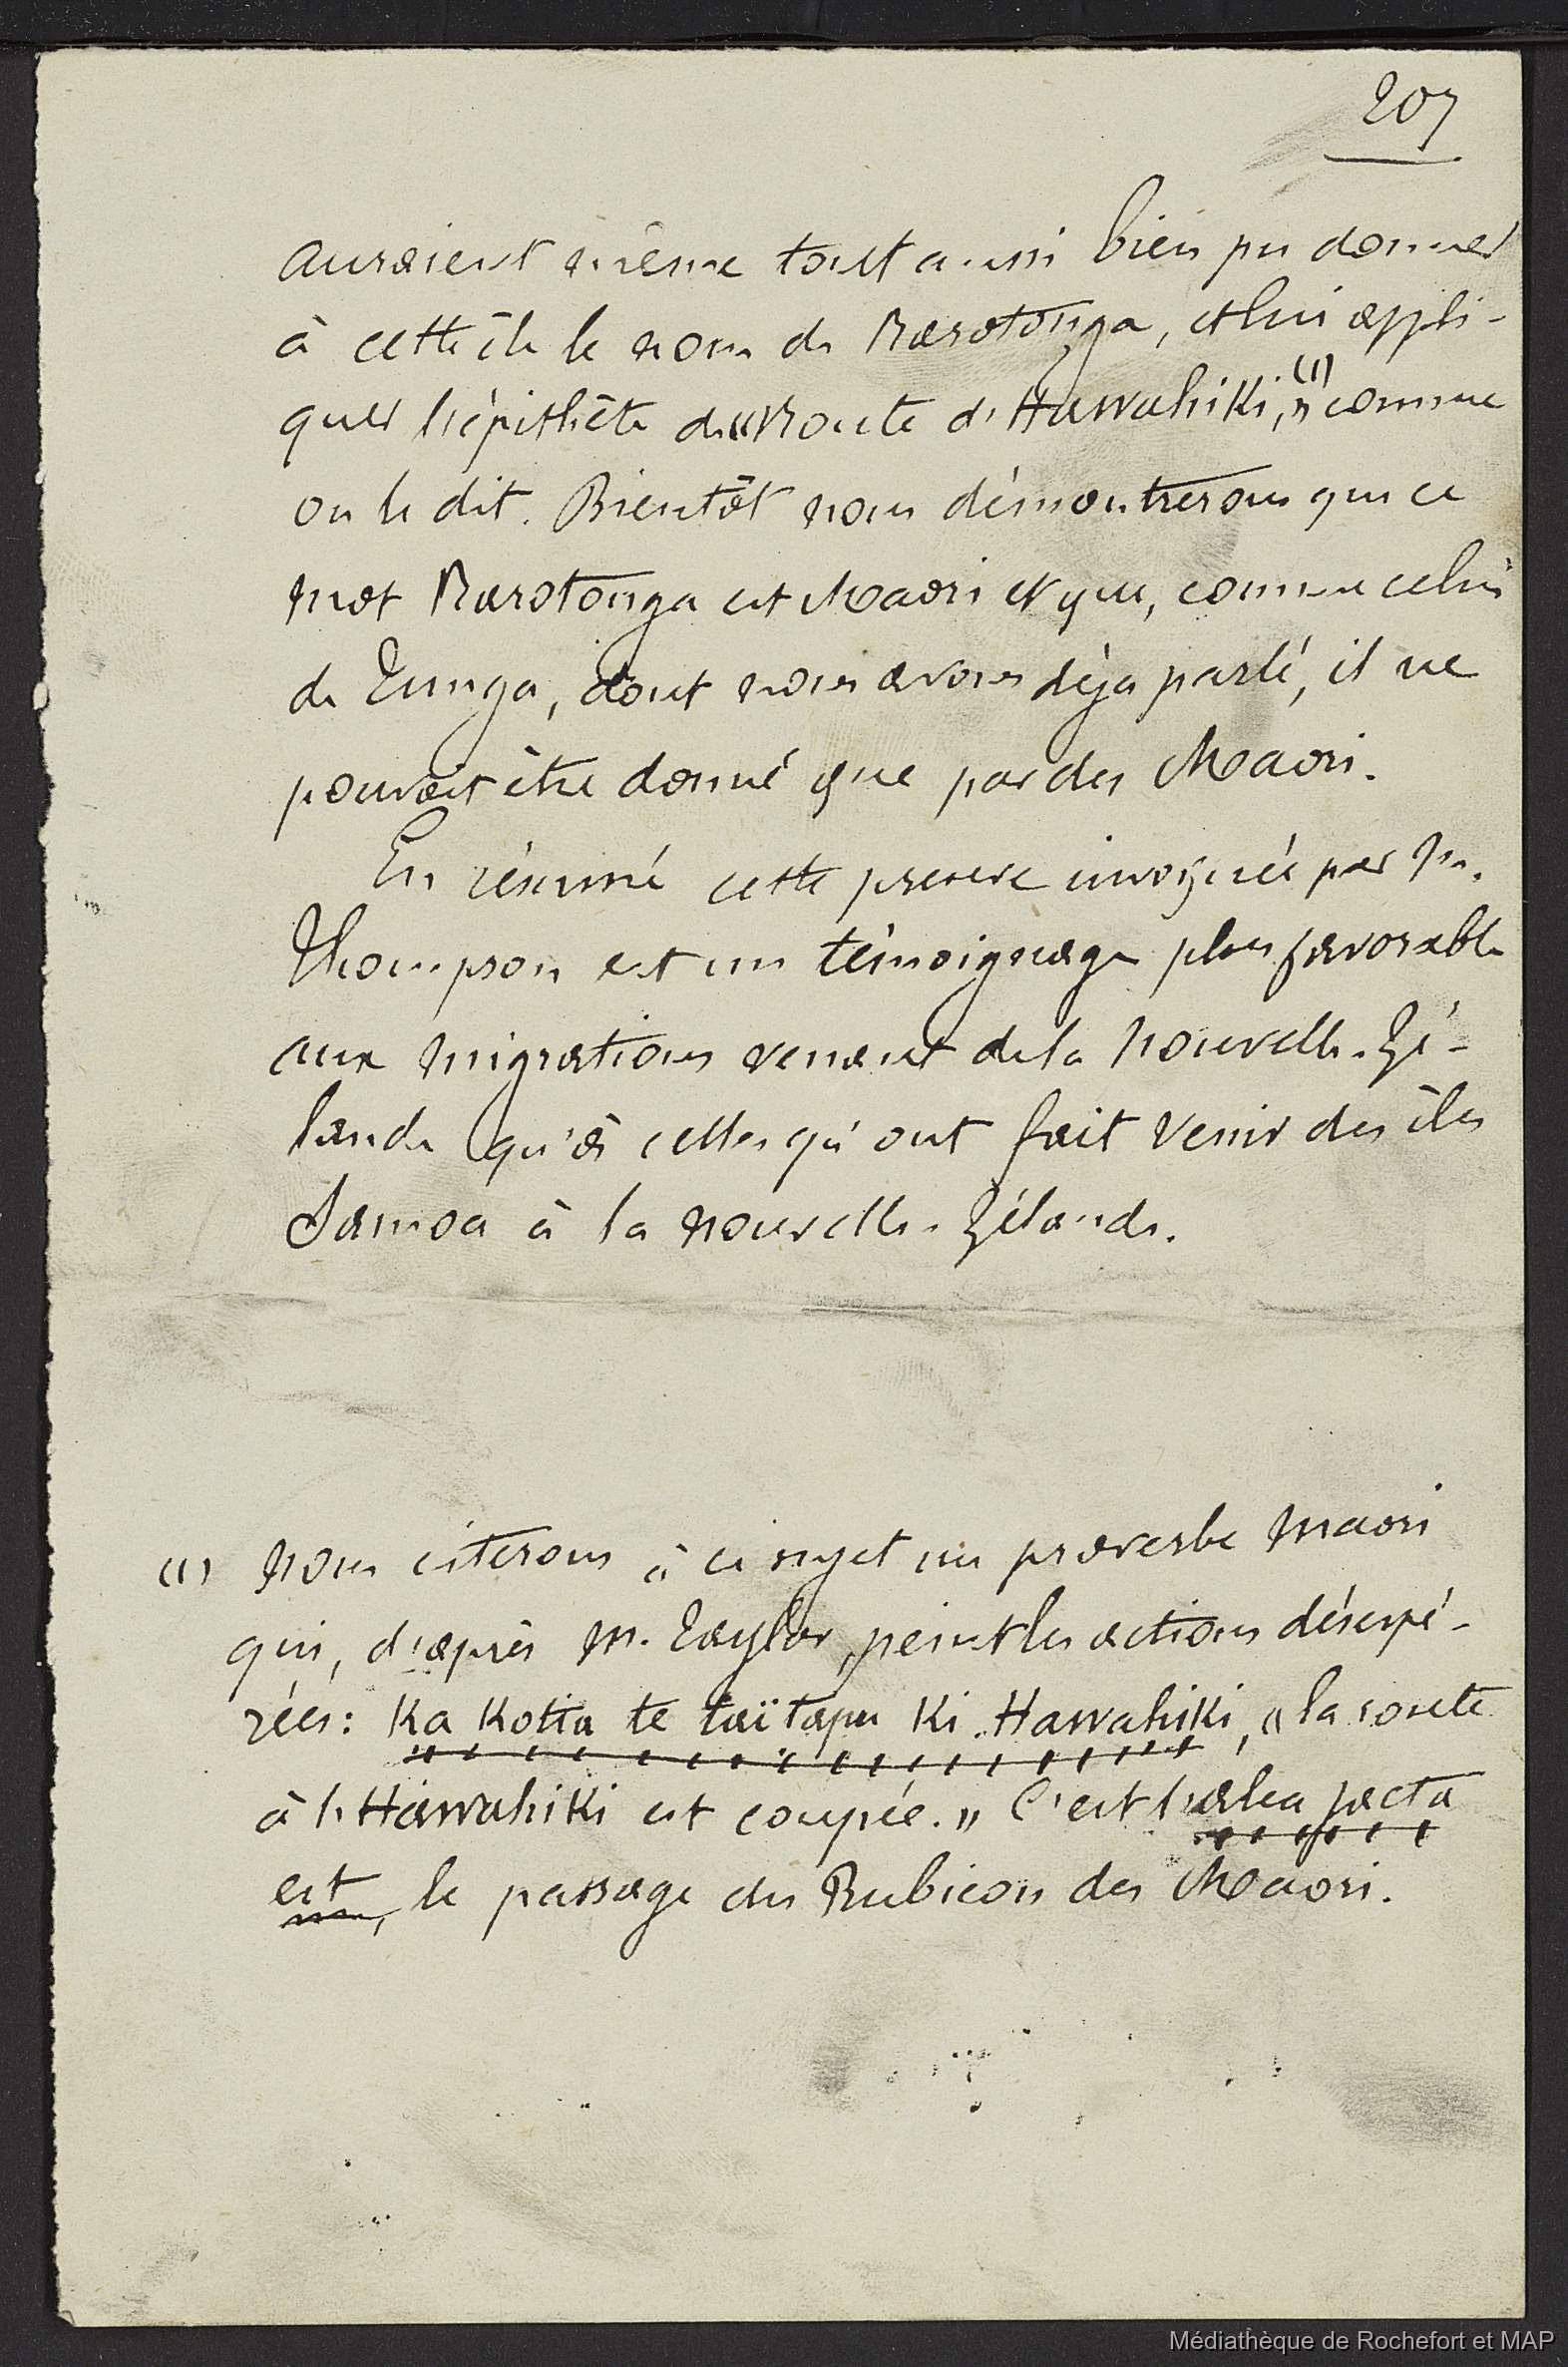 207
auraient même tout aussi bien pu donner
à cette île le nom de Rarotonga, et lui appli-
quer l'épithète de « Route d'Hawahiki, » (1) comme
on le dit. Bientôt nous démontrerons que ce
mot Rarotonga est Maori et que, comme celui
de Tunga, dont nous avons déja parlé, il ne
pouvait être donné que par des Maori.
En résumé cette preuve invoquée par M.
Thompson est un témoignage plus favorable
aux migrations venant de la Nouvelle-Zé-
lande qu'à celles qu'ont fait venir des îles
Samoa à la Nouvelle-Zélande.
(1) Nous citerons à ce sujet un proverbe Maori
qui, d'après M. Taylor, peint les actions désespé-
rées: Ka Kotia te taï tapu Ki Hawahiki, « la route
à l'Hawahiki est coupée. » C'est l'alea jacta
est, le passage du Rubicon des Maori.
Médiathèque de Rochefort et MAP